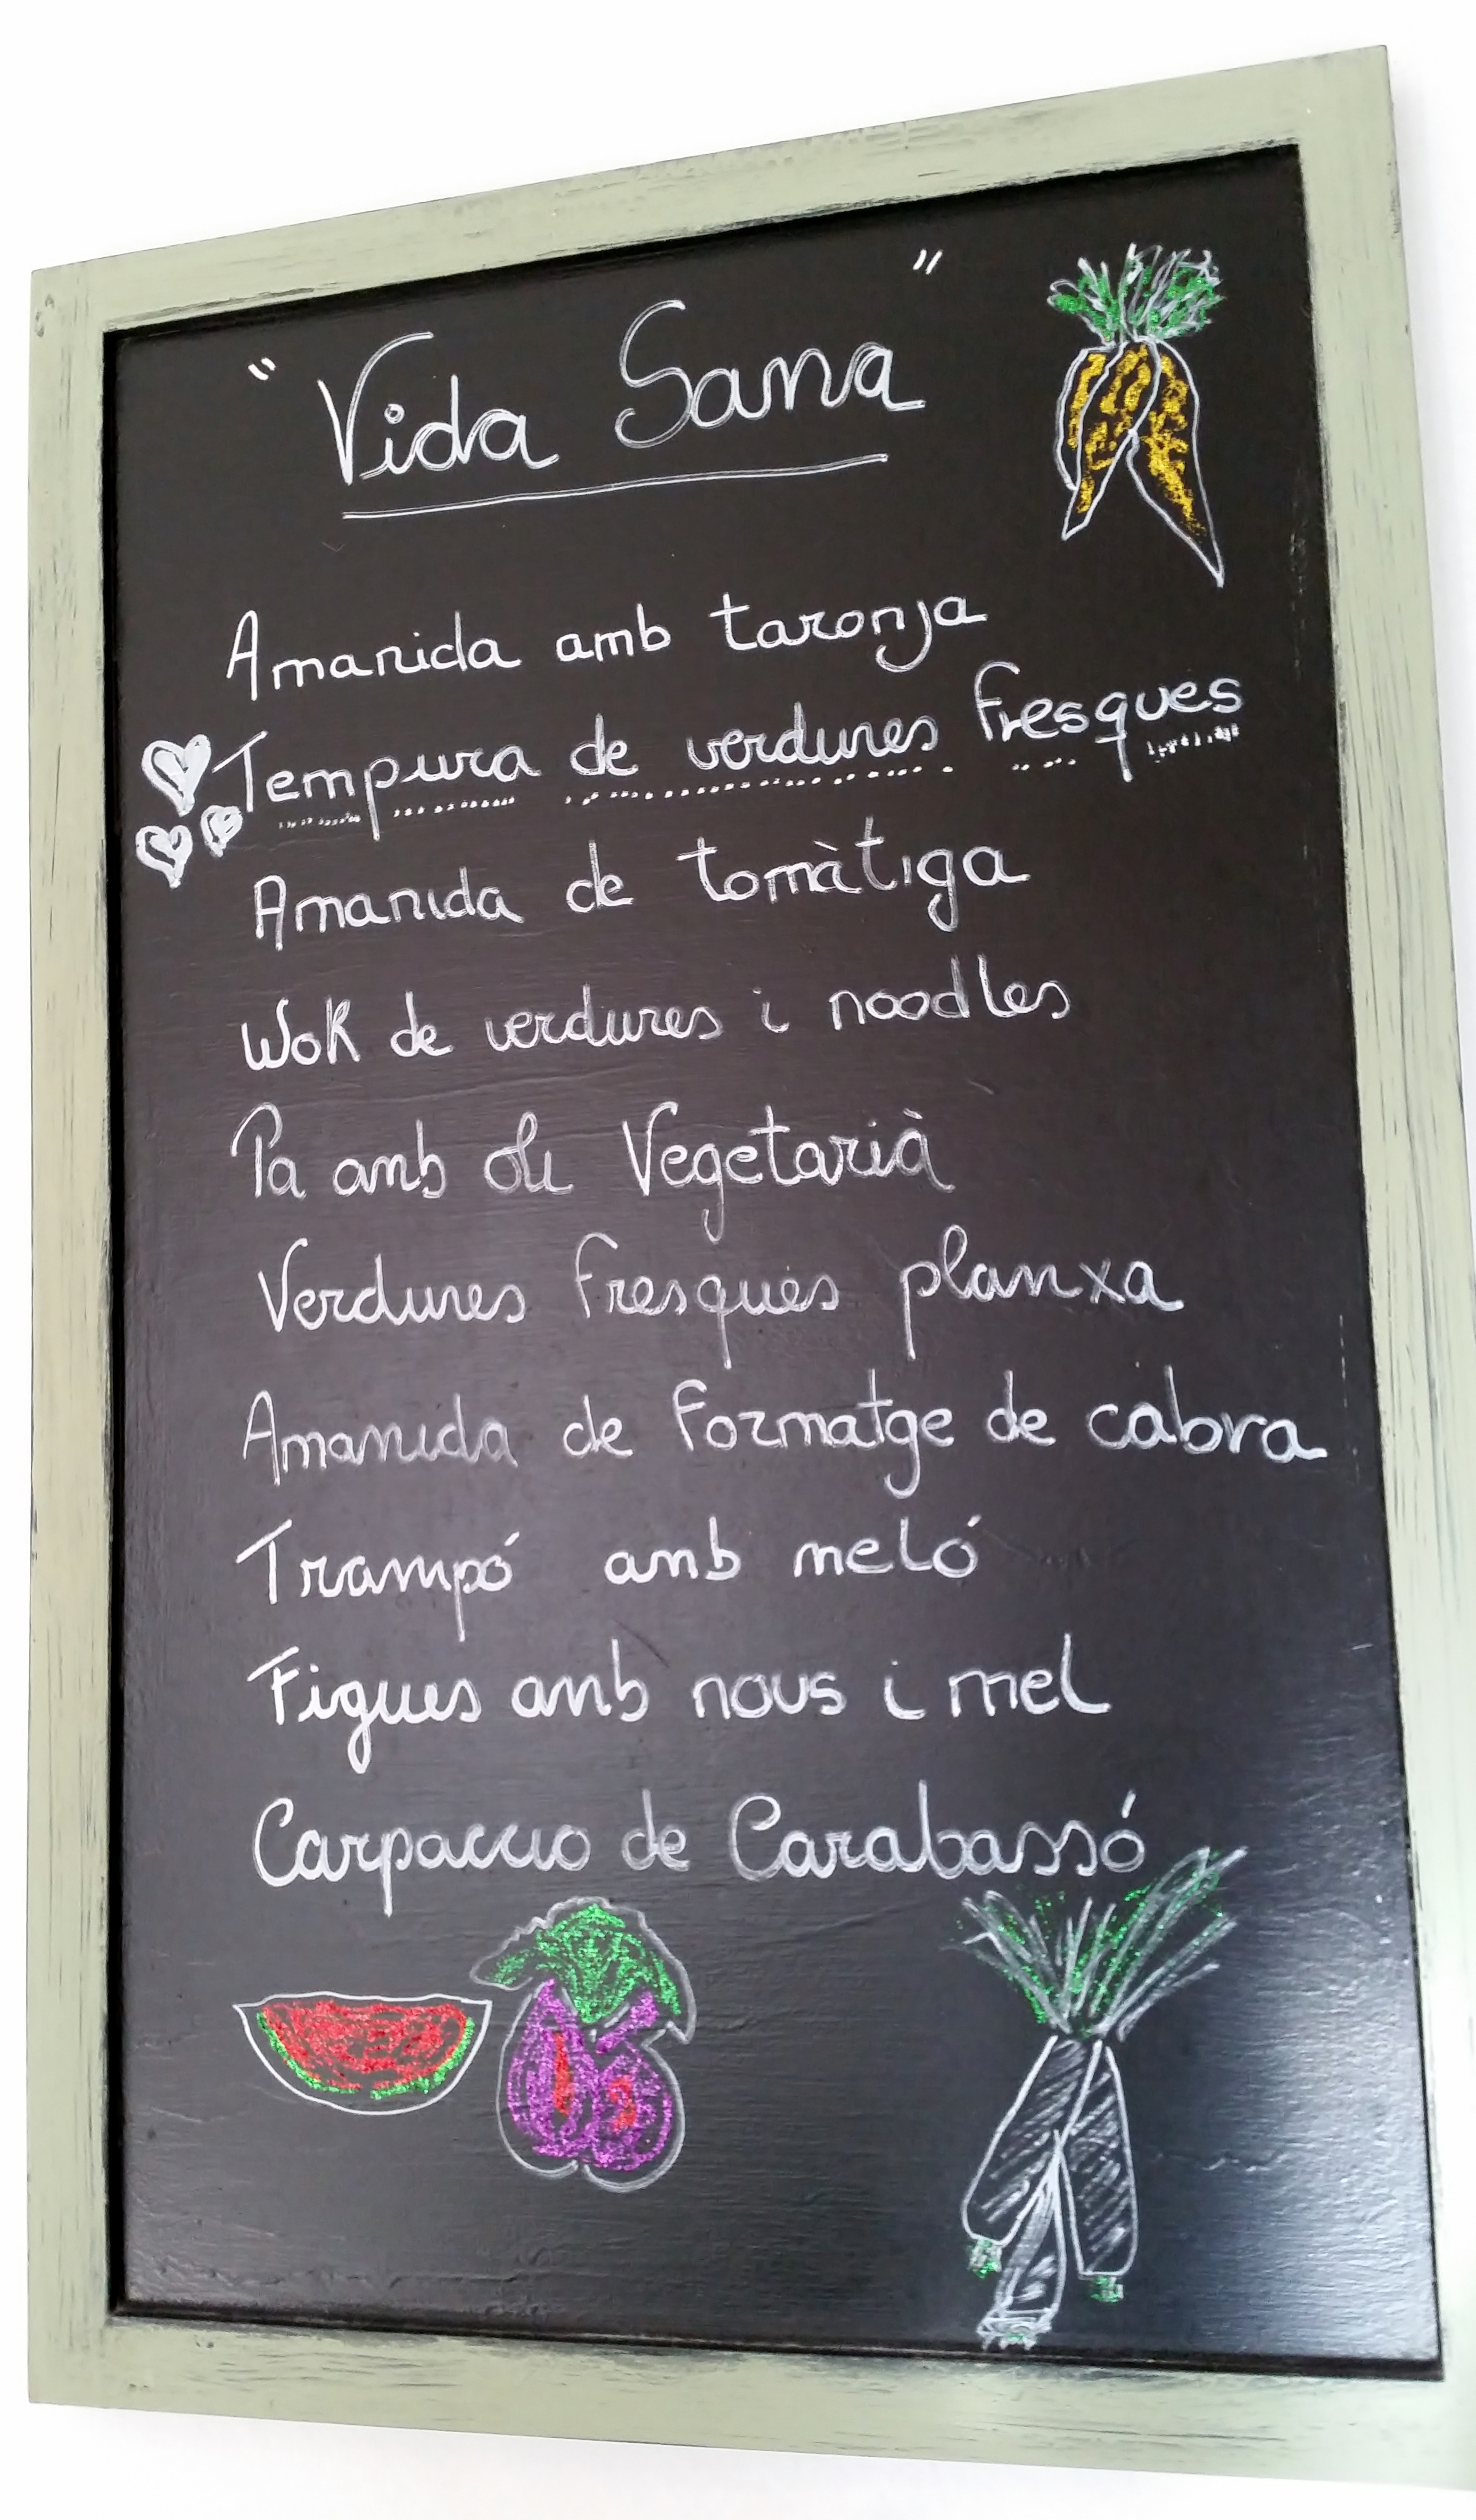 " Vida Sana "
Amanida amb taronja
Tempura de verdures fresques
Amanida de tomàtiga
Wok de verdures i noodles
Pa amb oli Vegetarià
Verdures fresques planxa
Amanida de formatge de cabra
Trampó amb meló
Figues amb nous i mel
Carpaccio de Carabassó